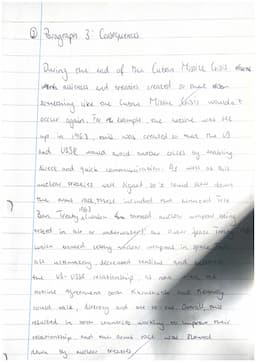 ② Paragraph 3: Consequences
During the end of the Cuban Missile Crisis
alliances and treaties created so that
something like the Cuban Missile Crisis wouldn't
occur again. For example, the hotline was set
up in 1963, this was created so that the US
and USSR would avoid another crisis by enabling
direct and quick communication. As well as this
nuclear treaties were signed so could slow down
the arms race, these included the Limited Test
Ban Treaty 1963 banned nuclear weapons being
tested in air or underwater, an outer space treaty 1967
which banned using nuclear weapons in space
all ultimately decreased tensions and
the US-USSR relationship, as now after the
hotline agreement both Khrushchev and Kennedy
could talk directly and one to one. Overall, this
resulted in both countries working to improve their
relationship and the arms race was slowed
down by nuclear treaties